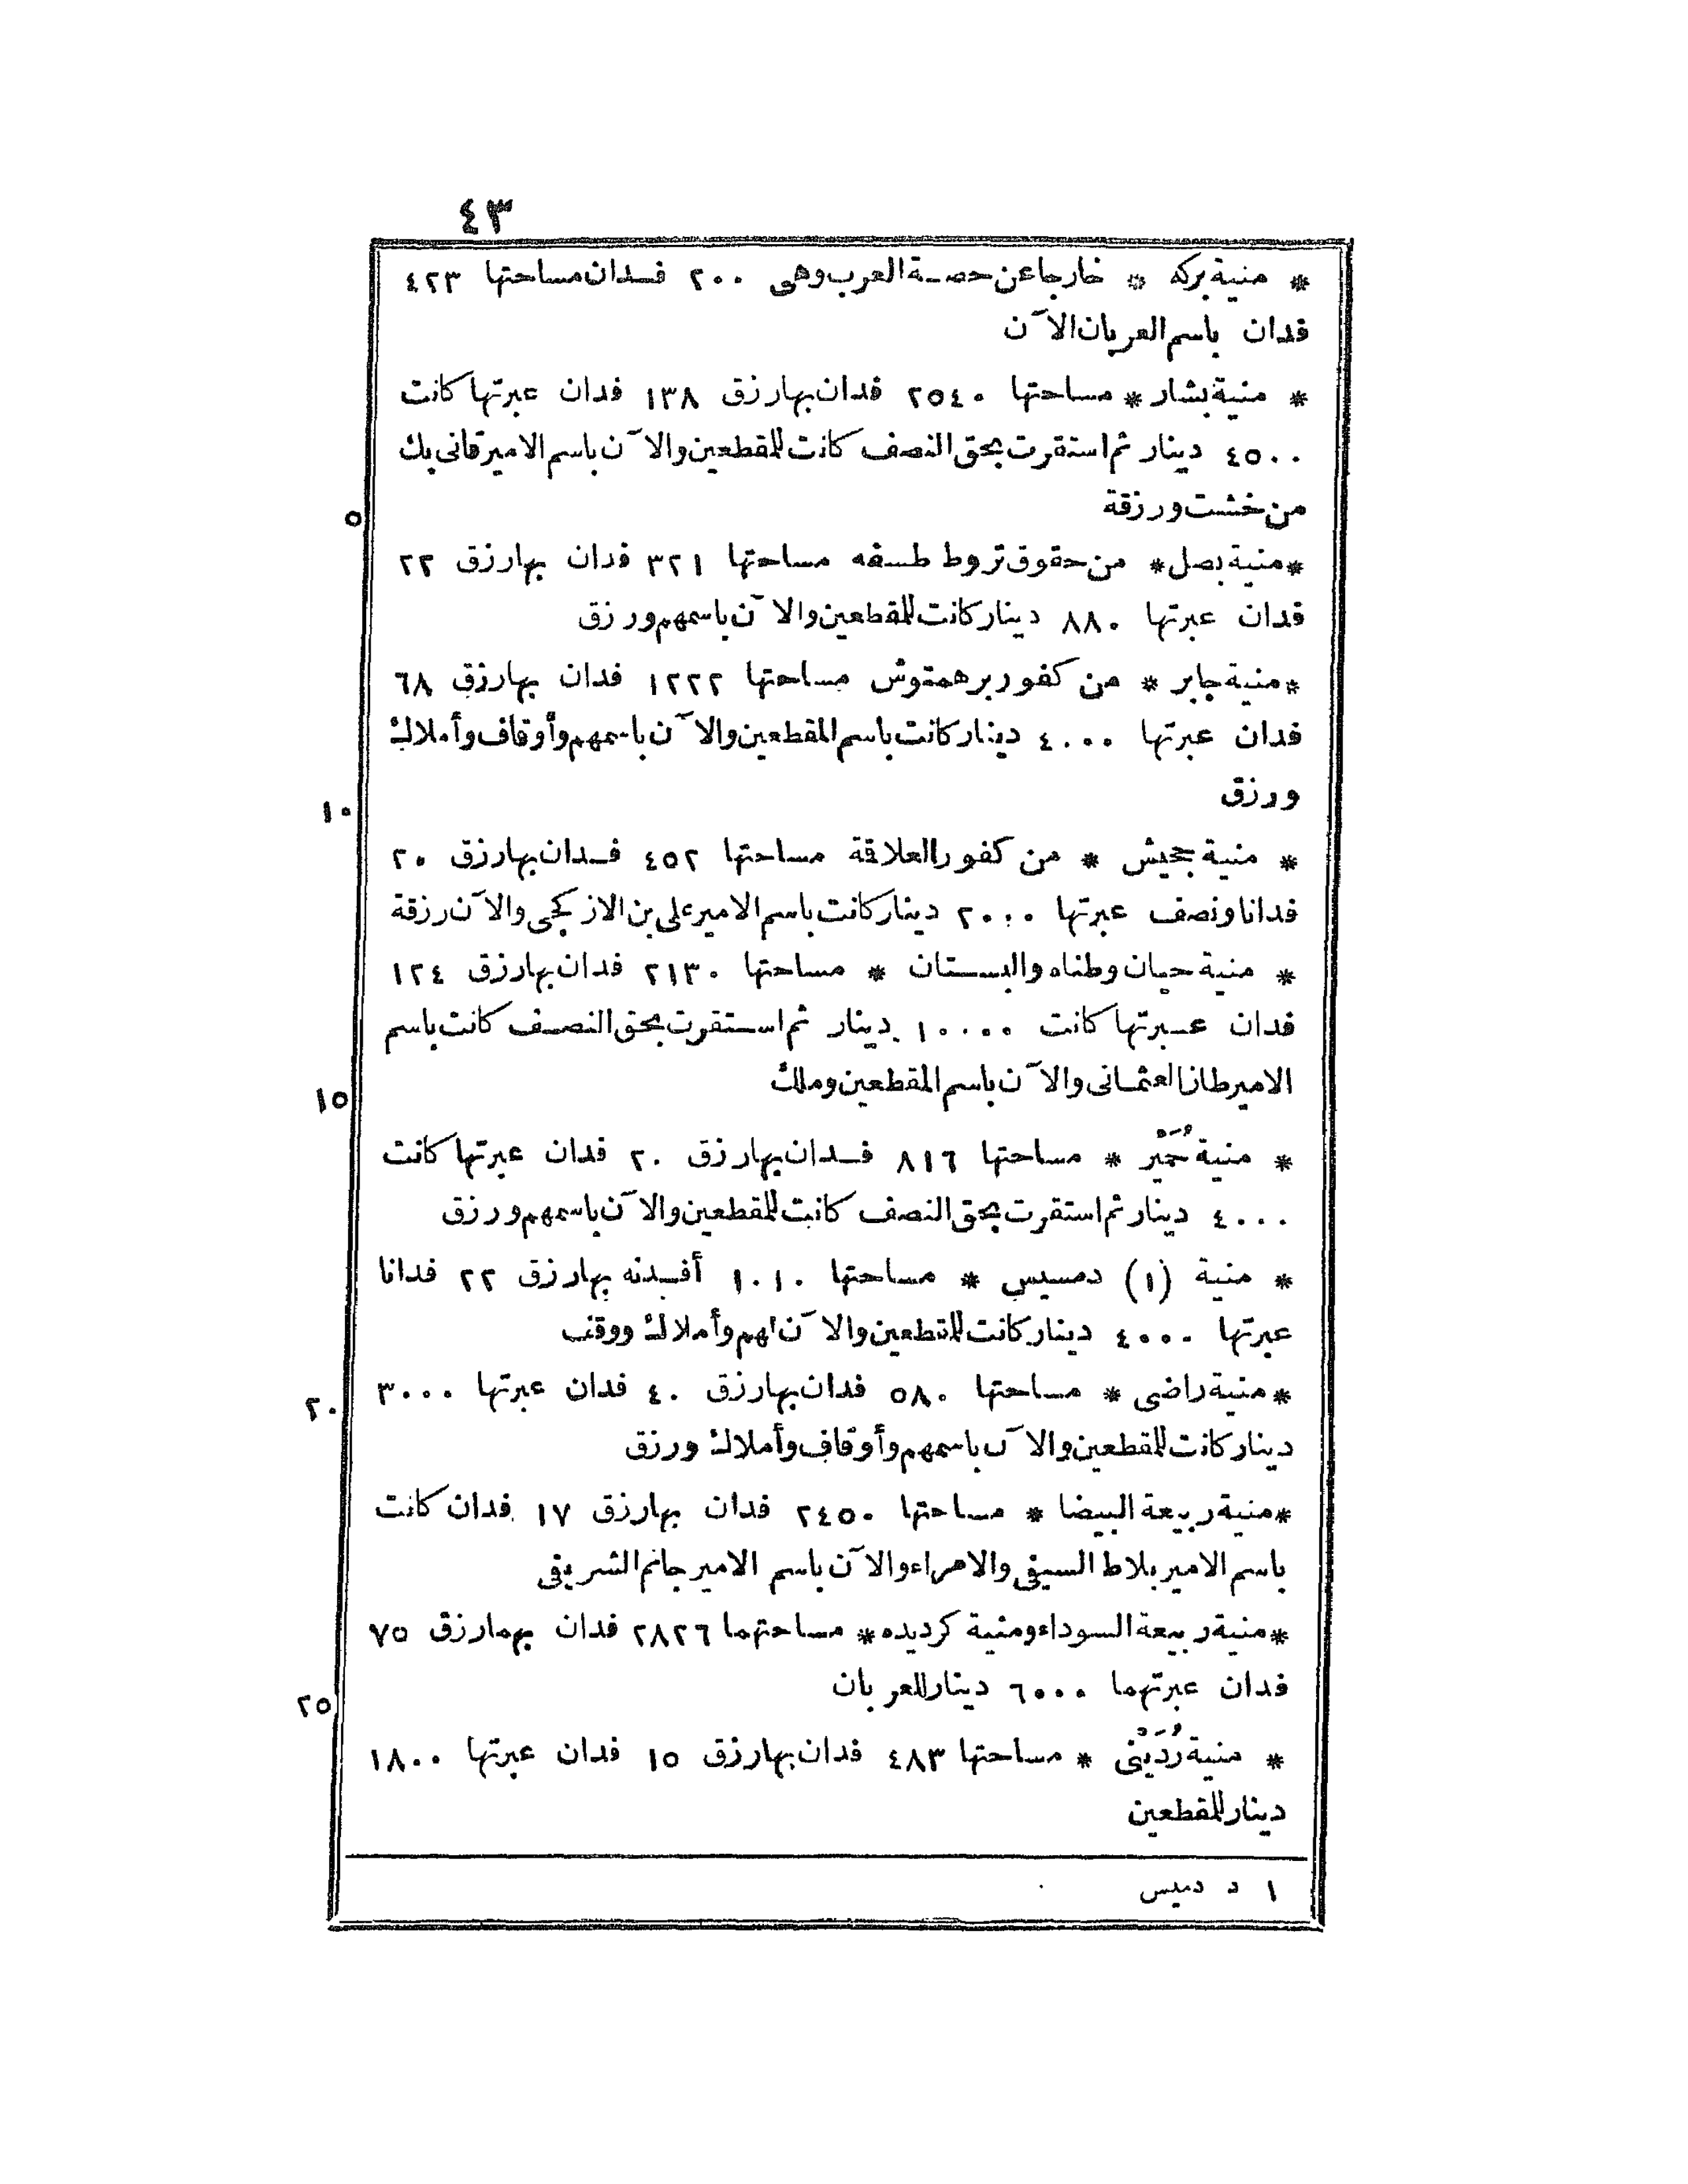 ٤٣
* منية بركه * خارجا عن حصة العرب وهى ٢٠٠ فدان مساحتها ٤٢٣
فدان باسم العربان الآن
* منية بشار * مساحتها ٢٥٤٠ فدان بها رزق ١٣٨ فدان عبرتها كانت
٤٥٠٠ دينار ثم استقرت بحق النصف كانت للمقطعين والآن باسم الامير قانى بك
٥
من خشت ورزقة
*منية بصل* من حقوق تروط طسفه مساحتها ٣٢١ فدان بها رزق ٢٢
فدان عبرتها ٨٨٠ دينار كانت للمقطعين والآن باسمهم ورزق
*منية جابر * من كفور برهمتوش مساحتها ١٢٢٢ فدان بها رزق ٦٨
فدان عبرتها ٤٠٠٠ دينار كانت باسم المقطعين والآن باسمهم وأوقاف وأملاك
١٠
ورزق
* منية جحيش * من كفور العلاقة مساحتها ٤٥٢ فدان بها رزق ٢٠
فدانا ونصف عبرتها ٢٠٠٠ دينار كانت باسم الامير على بن الازكجى والآن رزقة
* منية حيان وطناه والبستان * مساحتها ٢١٣٠ فدان بها رزق ١٢٤
فدان عبرتها كانت ١٠٠٠٠ دينار ثم استقرت بحق النصف كانت باسم
١٥
الامير طاز العثمانى والآن باسم المقطعين وملك
* منية حُمَيْر * مساحتها ٨١٦ فدان بها رزق ٢٠ فدان عبرتها كانت
٤٠٠٠ دينار ثم استقرت بحق النصف كانت للمقطعين والآن باسمهم ورزق
* منية (١) دمسيس * مساحتها ١٠١٠ أفدنه بها رزق ٢٢ فدانا
عبرتها ٤٠٠٠ دينار كانت للمقطعين والآن لهم وأملاك ووقف
٢٠
*منية راضى * مساحتها ٥٨٠ فدان بها رزق ٤٠ فدان عبرتها ٣٠٠٠
دينار كانت للمقطعين والآن باسمهم وأوقاف وأملاك ورزق
*منية ربيعة البيضا * مساحتها ٢٤٥٠ فدان بها رزق ١٧ فدان كانت
باسم الامير بلاط السيفى والامراء والآن باسم الامير جانم الشريفى
*منية ربيعة السوداء ومنية كرديده* مساحتهما ٢٨٢٦ فدان بهما رزق ٧٥
٢٥
فدان عبرتهما ٦٠٠٠ دينار للعربان
* منية رُدَيْنى * مساحتها ٤٨٣ فدان بها رزق ١٥ فدان عبرتها ١٨٠٠
دينار للمقطعين
١ د دميس